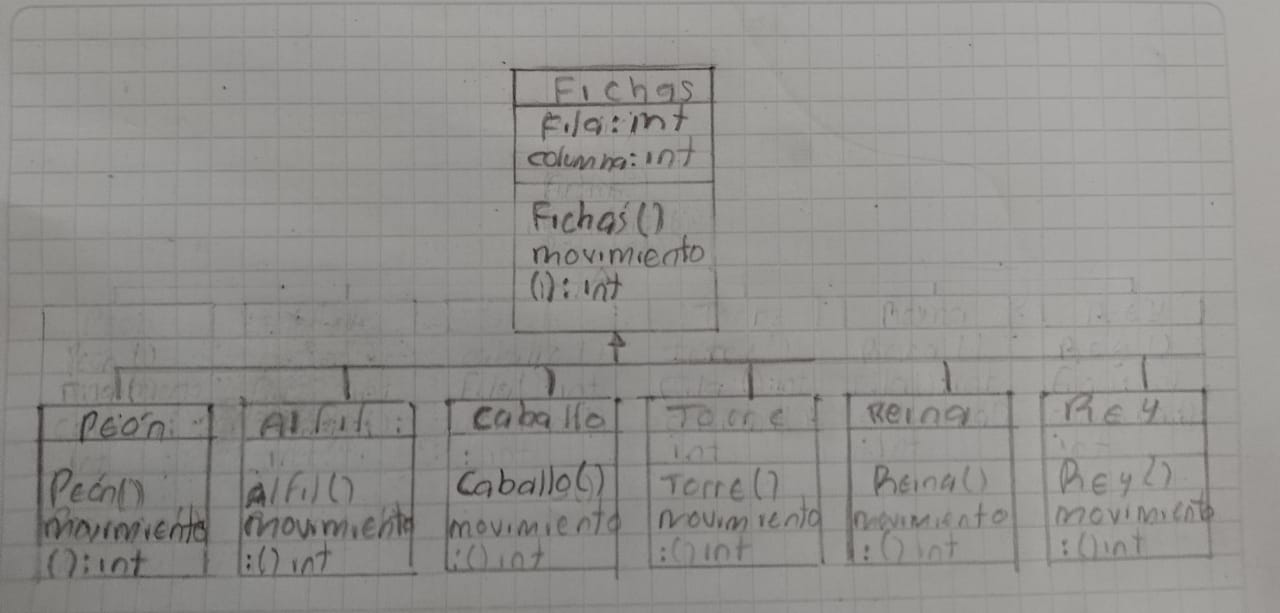 Fichas
Fila: int
columna: int
Fichas()
movimiento
(): int
Peón
Peón()
movimiento
(): int
Alfil
Alfil()
movimiento
:() int
Caballo
Caballo()
movimiento
:() int
Torre
int
Torre()
movimiento
:() int
Reina
Reina()
movimiento
:() int
Rey
Rey()
movimiento
:() int